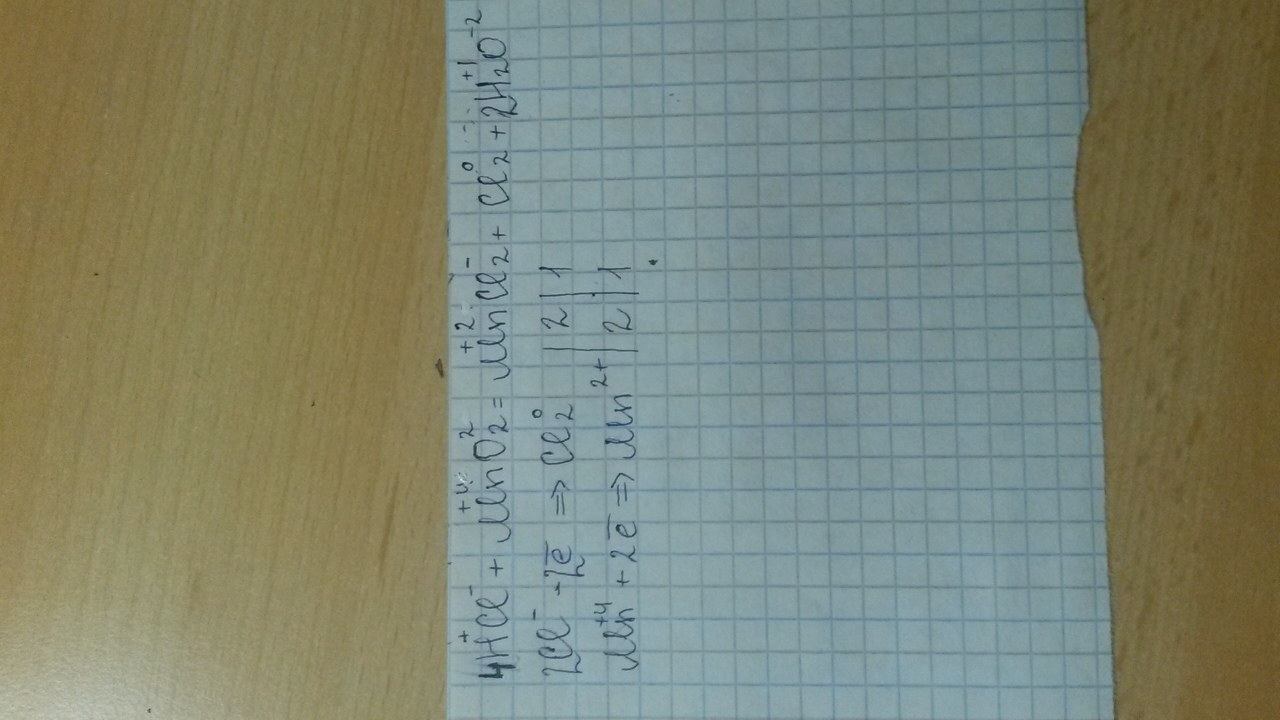 4H⁺Cl⁻ + Mn⁺⁴O₂² = Mn⁺²Cl₂⁻ + Cl₂⁰ + 2H₂⁺¹O⁻²
2Cl⁻ - 2e̅ ⇒ Cl₂⁰ | 2 | 1
Mn⁺⁴ + 2e̅ ⇒ Mn²⁺ | 2 | 1